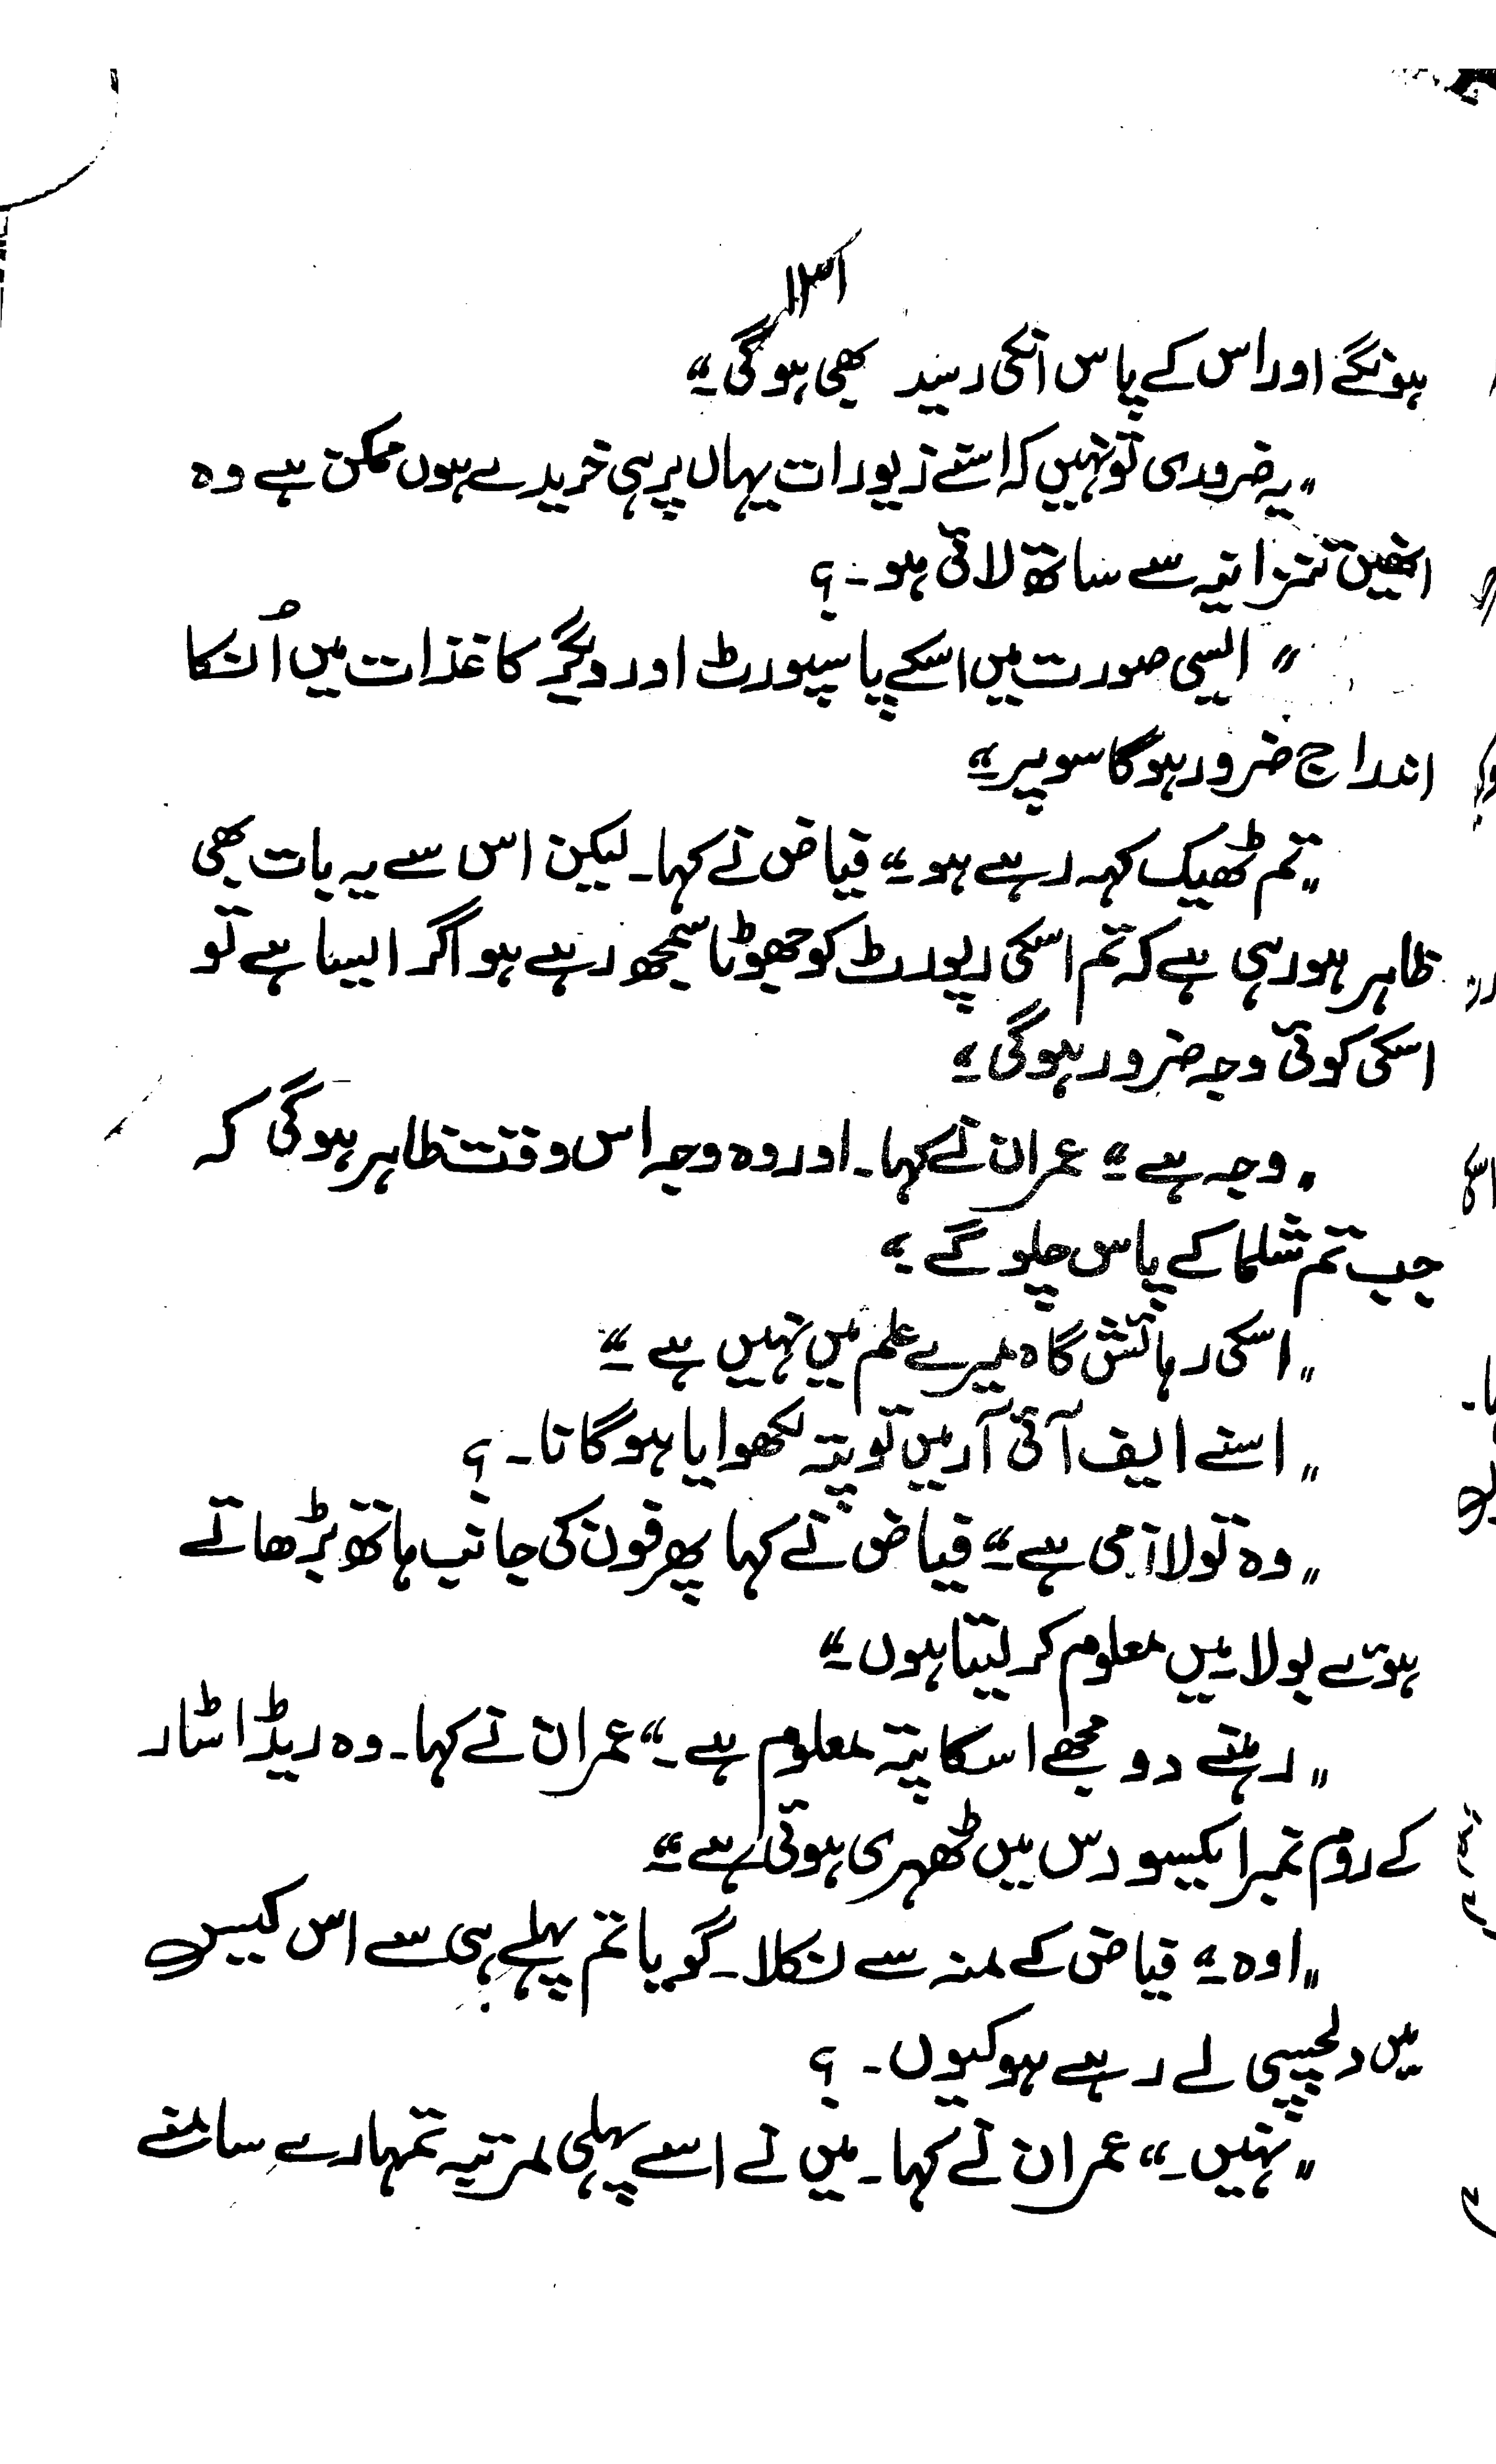 ۱۳۱
ہونگے اور اس کے پاس انکی رسید بھی ہوگی۔“
”یہ ضروری تو نہیں کہ اسنے زیورات یہاں پر ہی خریدے ہوں ممکن ہے وہ
انھیں تنزانیہ سے ساتھ لائی ہو۔؟
”ایسی صورت میں اسکے پاسپورٹ اور دیگر کاغذات میں اُنکا
اندراج ضرور ہوگا سوپر۔“
”تم ٹھیک کہہ رہے ہو۔“ فیاض نے کہا۔ لیکن اس سے یہ بات بھی
ظاہر ہو رہی ہے کہ تم اسکی رپورٹ کو جھوٹا سمجھ رہے ہو اگر ایسا ہے تو
اسکی کوئی وجہ ضرور ہوگی۔“
”وجہ ہے۔“ عمران نے کہا۔ اور وہ وجہ اس وقت ظاہر ہوگی کہ
جب تم شلما کے پاس چلو گے۔“
”اسکی رہائش گاہ میرے علم میں نہیں ہے۔“
”اسنے ایف آئی آر میں تو پتہ لکھوایا ہوگا نا۔؟
”وہ تو لازمی ہے۔“ فیاض نے کہا پھر فون کی جانب ہاتھ بڑھاتے
ہوئے بولا۔ میں معلوم کر لیتا ہوں۔“
”رہنے دو مجھے اسکا پتہ معلوم ہے۔“ عمران نے کہا۔ وہ ریڈ اسٹار
کے روم نمبر ایکسو دس میں ٹھہری ہوئی ہے۔“
”اوہ۔“ فیاض کے منہ سے نکلا۔ گویا تم پہلے ہی سے اس کیس
میں دلچسپی لے رہے ہو کیوں۔؟
”نہیں۔“ عمران نے کہا۔ میں نے اسے پہلی مرتبہ تمہارے سامنے